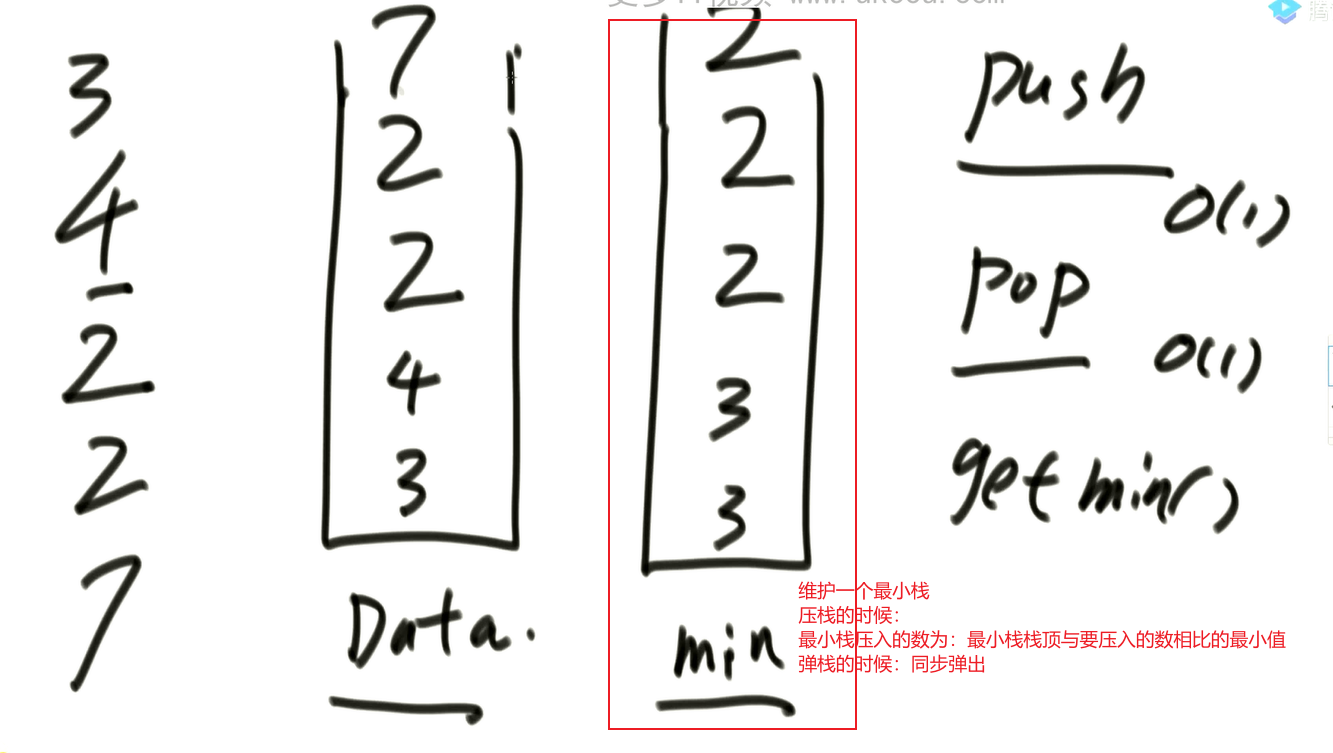 3
4
2
2
7
7
2
2
4
3
Data.
2
2
2
3
3
min
push
O(1)
pop
O(1)
getmin()
维护一个最小栈
压栈的时候：
最小栈压入的数为：最小栈栈顶与要压入的数相比的最小值
弹栈的时候：同步弹出